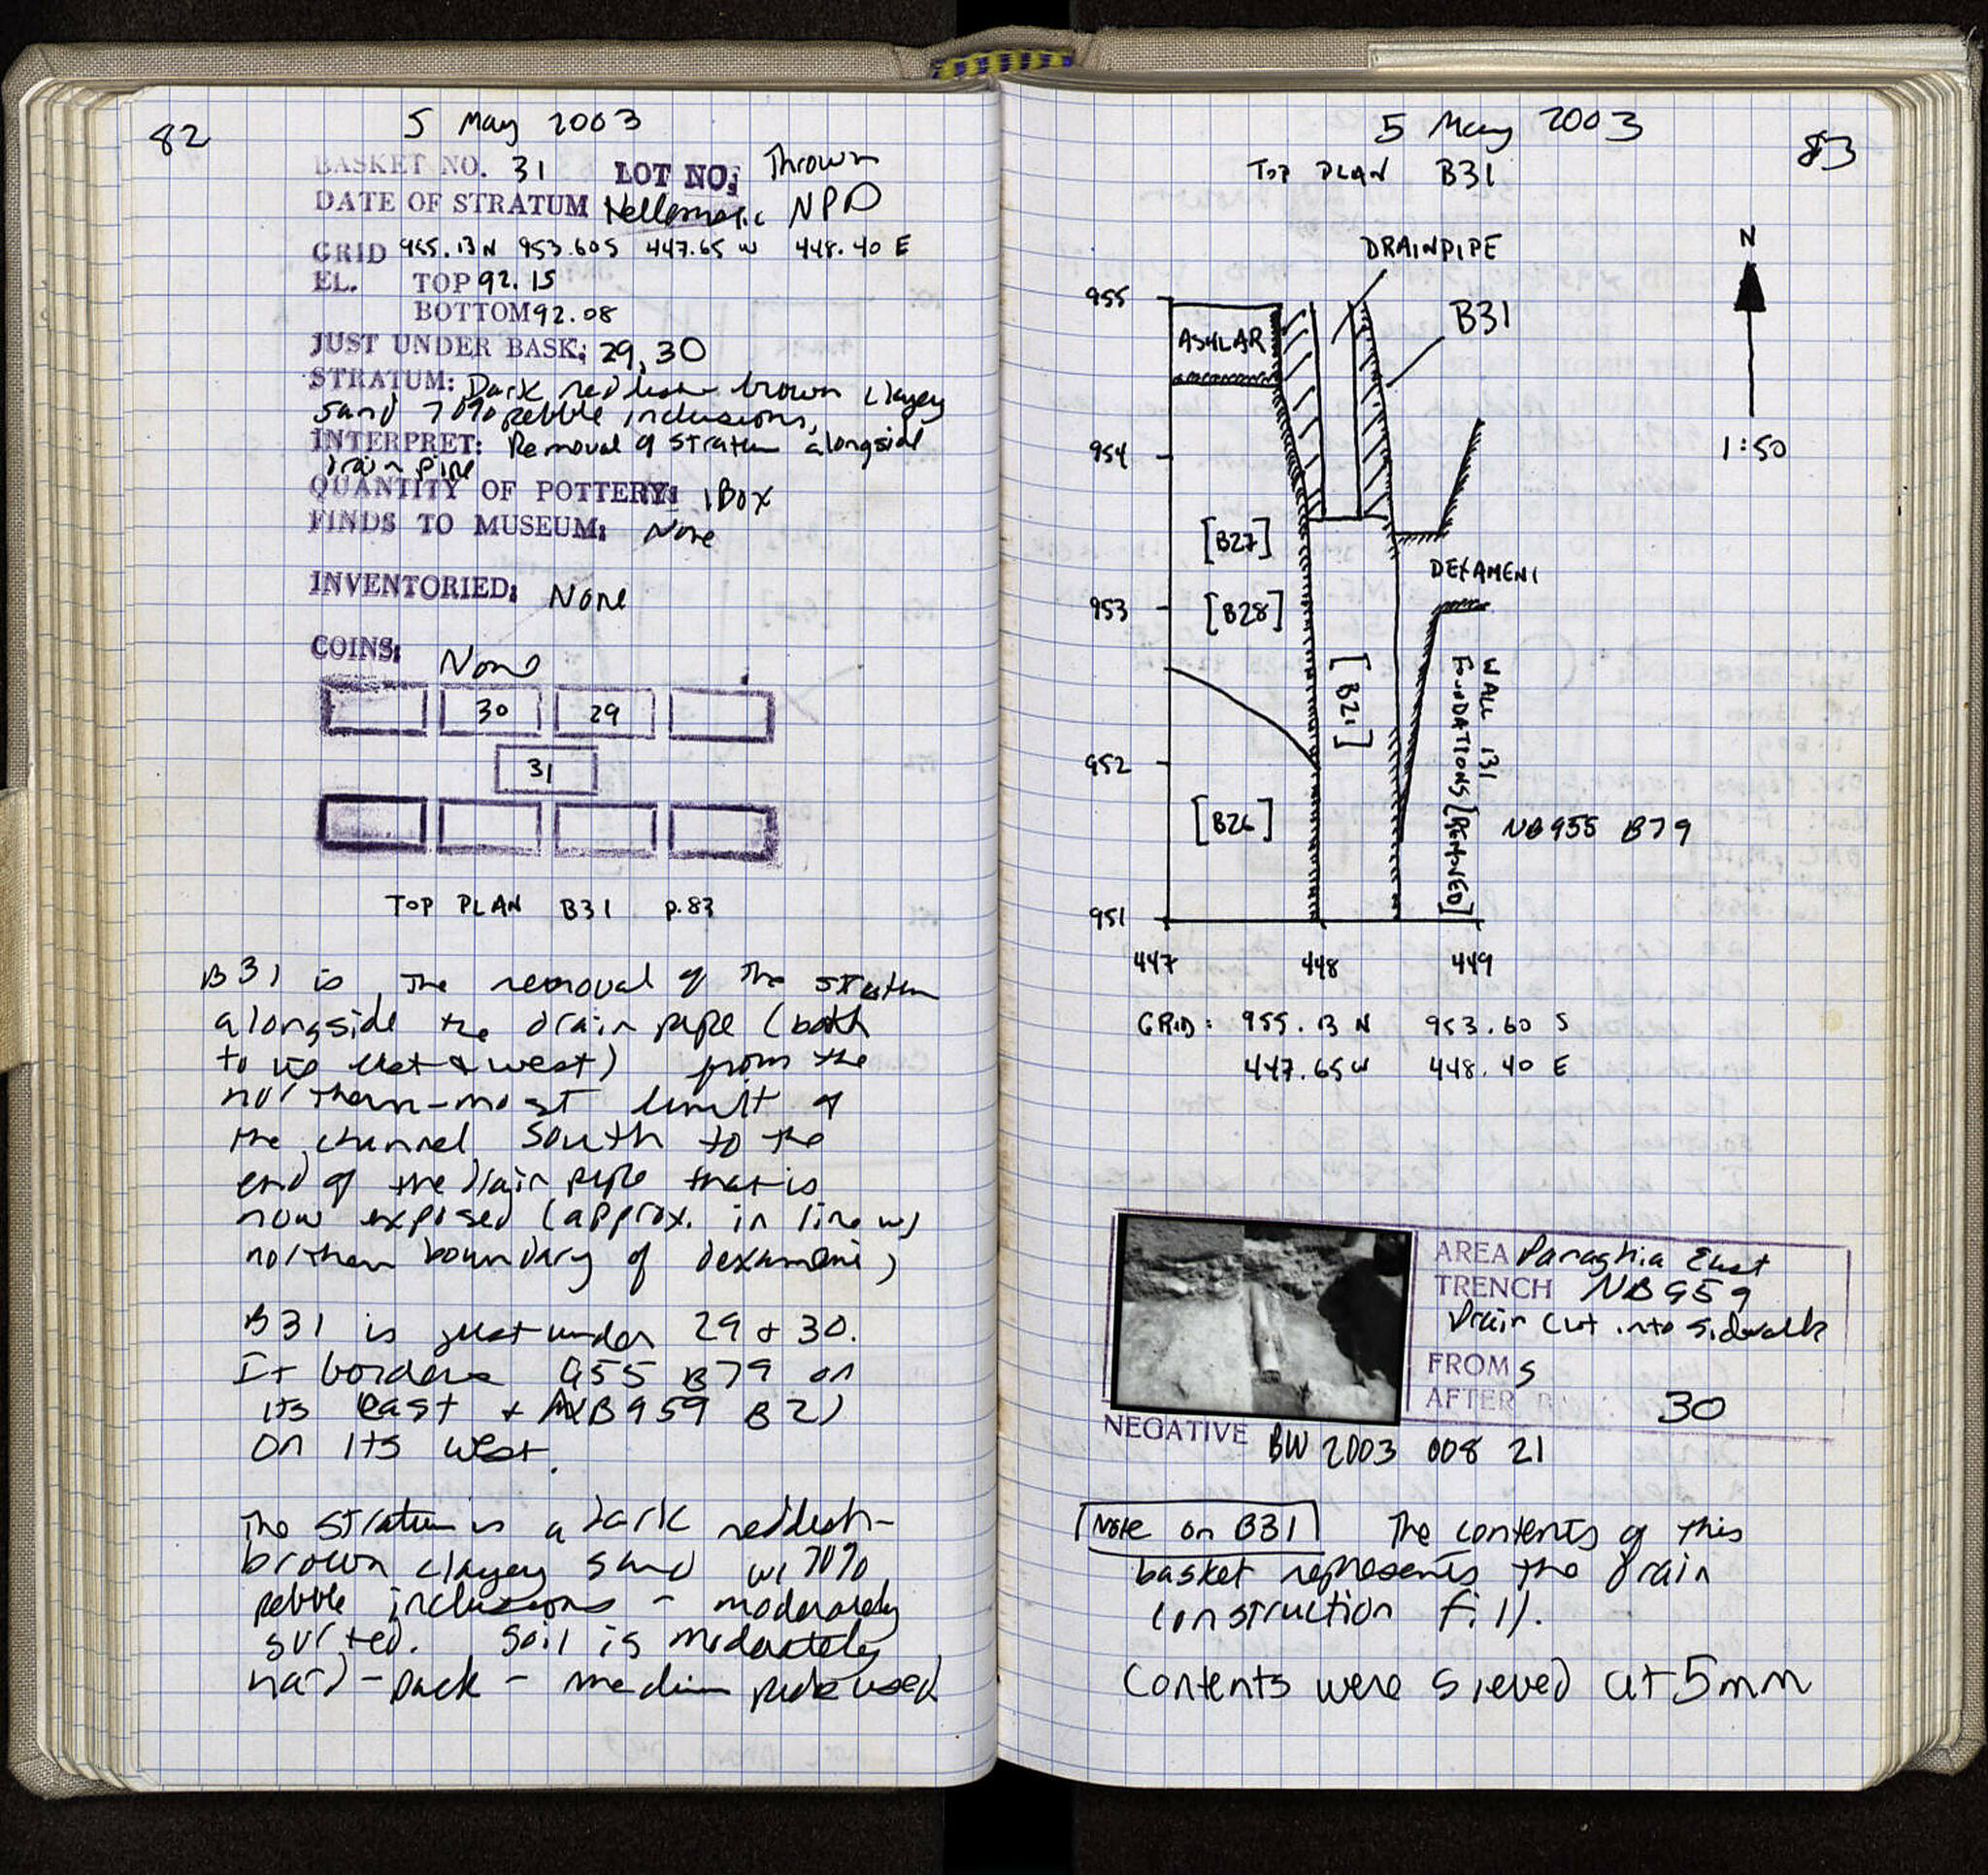 82
5 May 2003
BASKET NO. 31 LOT NO: Thrown
DATE OF STRATUM Hellenistic NPD
GRID 955.13N 953.60S 447.65 W 448.40 E
EL. TOP 92.15
BOTTOM 92.08
JUST UNDER BASK: 29, 30
STRATUM: Dark reddish brown clayey
sand 70% pebble inclusions,
INTERPRET: Removal of stratum alongside
drain pipe
QUANTITY OF POTTERY: 1 Box
FINDS TO MUSEUM: None
INVENTORIED: None
COINS: None
30 29
31
TOP PLAN B31 p.83
B31 is the removal of the stratum
alongside the drain pipe (both
to its east & west) from the
northern-most limit of
the channel south to the
end of the drain pipe that is
now exposed (approx. in line w/
northern boundary of dexameni)
B31 is just under 29 & 30.
It borders 955 B79 on
its east & NB959 B21
on its west.
The stratum is a dark reddish-
brown clayey sand w/ 70%
pebble inclusions - moderately
sorted. Soil is moderately
hard-pack - medium pick used
5 May 2003
83
TOP PLAN B31
DRAINPIPE
N
955
ASHLAR
B31
954
1:50
[B27]
DEXAMENI
953
[B28]
[B21]
WALL 131
FOUNDATIONS [REMOVED]
952
[B26]
NB955 B79
951
447 448 449
GRID: 955.13 N 953.60 S
447.65 W 448.40 E
AREA Panaghia East
TRENCH NB959
Drain cut into sidewalk
FROM S
AFTER 30
NEGATIVE BW 2003 008 21
Note on B31 The contents of this
basket represents the drain
construction fill.
Contents were sieved at 5mm